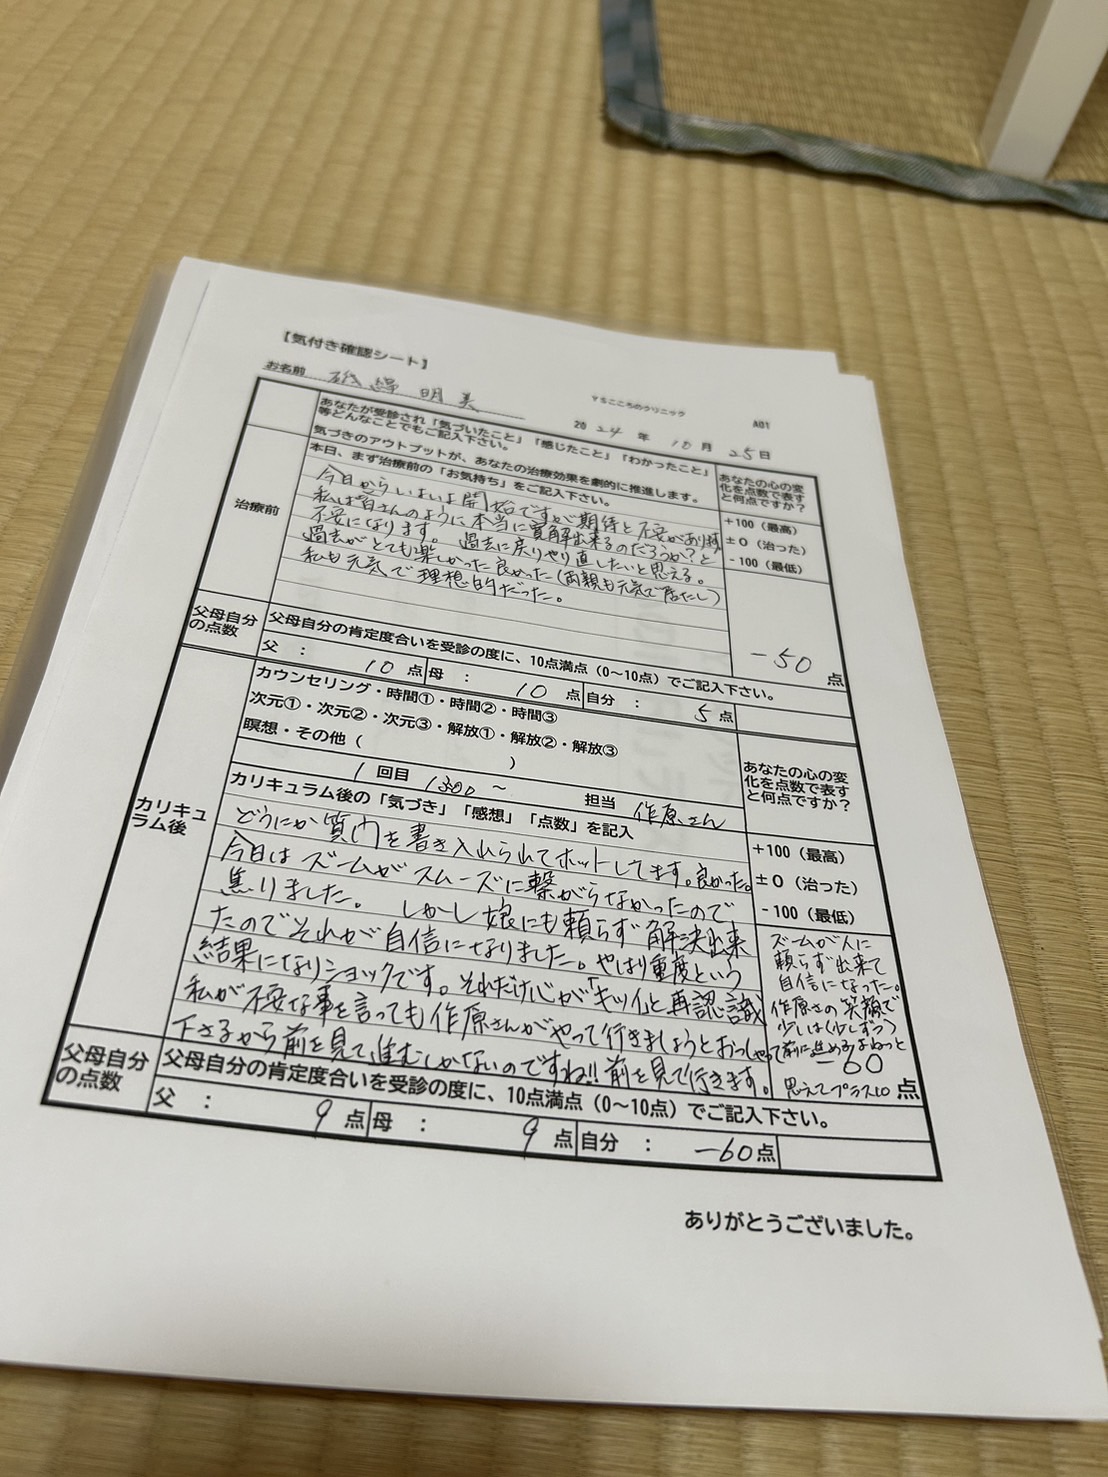 【気付き確認シート】
お名前 磯 明美
YSこころのクリニック A01
2024年10月25日
あなたが受診され「気づいたこと」「感じたこと」「わかったこと」
等どんなことでもご記入下さい。
気づきのアウトプットが、あなたの治療効果を劇的に推進します。
あなたの心の変
化を点数で表す
と何点ですか?
治療前
本日、まず治療前の「お気持ち」をご記入下さい。
今日からいよいよ開始ですが期待と不安があります
私は皆さんのように本当に寛解出来るのだろうか?と
不安になります。過去に戻りやり直したいと思える。
過去がとても楽しかった良かった(両親も元気で居たし)
私も元気で理想的だった。
+100(最高)
±0(治った)
-100(最低)
-50点
父母自分
の点数
父母自分の肯定度合いを受診の度に、10点満点(0~10点)でご記入下さい。
父: 10点 母: 10点 自分: 5点
カリキュ
ラム後
カウンセリング・時間①・時間②・時間③
次元①・次元②・次元③・解放①・解放②・解放③
瞑想・その他( )
1回目 1300~ 担当 作原さん
あなたの心の変
化を点数で表す
と何点ですか?
カリキュラム後の「気づき」「感想」「点数」を記入
どうにか質内を書き入れられてホットしてます。良かった。
今日はズームがスムーズに繋がらなかったので
焦りました。しかし娘にも頼らず解決出来
たのでそれが自信になりました。やはり重度という
結果になりショックです。それだけ心が「キツイ」と再認識
私が不安な事を言っても作原さんがやって行きましょうとおっしゃって
下さるから前を見て進むしかないのですね!!前を見て行きます。
+100(最高)
±0(治った)
-100(最低)
ズームが人に
頼らず出来て
自信になった。
作原さの笑顔で
少しは(少しずつ)
前に進めるよねっと
-60
思えてプラス10点
父母自分
の点数
父母自分の肯定度合いを受診の度に、10点満点(0~10点)でご記入下さい。
父: 9点 母: 9点 自分: -60点
ありがとうございました。